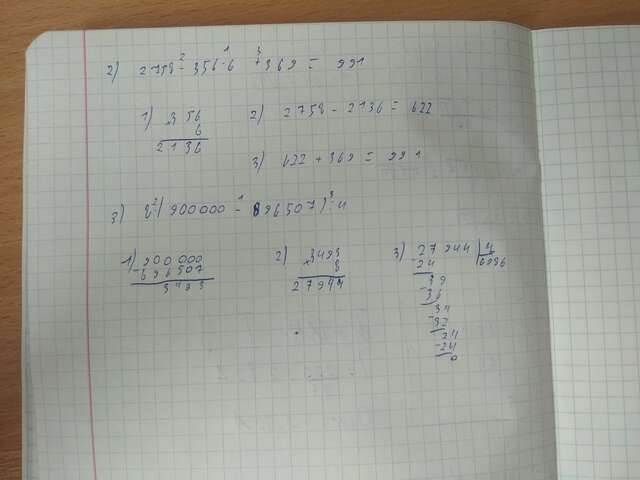 2) 2758 - 356·6 + 369 = 991
2 1 3
1) 356
6
2136
2) 2758 - 2136 = 622
3) 622 + 369 = 991
3) 8·(900000 - 896507):4
2 1 3
1) 900000
- 896507
3493
2) 3493
8
27944
3) 27944 | 4
- 24 6986
39
- 36
34
- 32
24
- 24
0